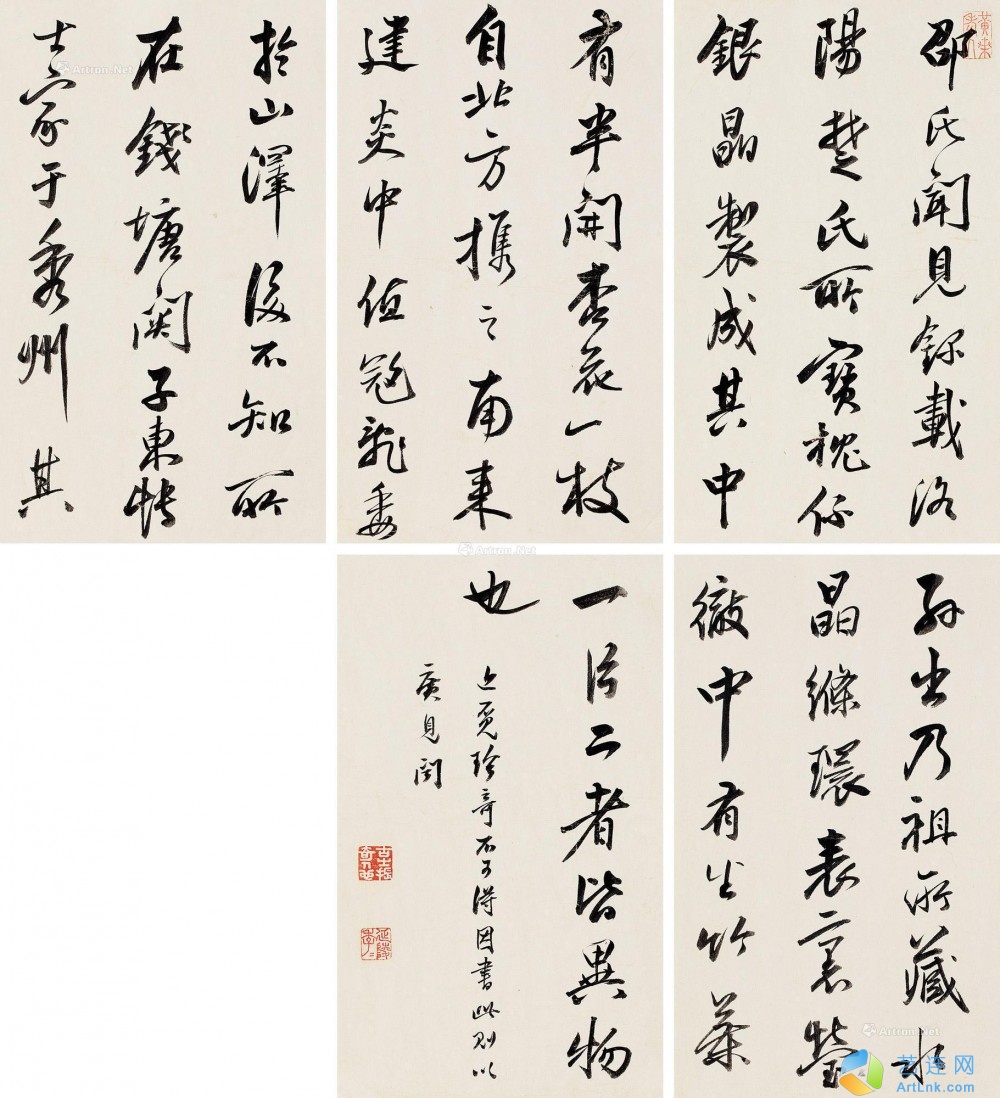 邵氏聞見錄載洛
陽楚氏所寶
銀晶製成其中
有半開杏花一枝
自北方攜之南来
建炎中值寇亂委
於山澤後不知所
在錢塘關子東博
士家于秀州其
孫出乃祖所藏水
晶絛環表裏瑩
徹中有生竹葉
一片二者皆異物
也
近覓珍奇不可得因書此則以
廣見聞
Artron.Net
Artron.Net
Artron.Net
艺连网
ArtLnk.com